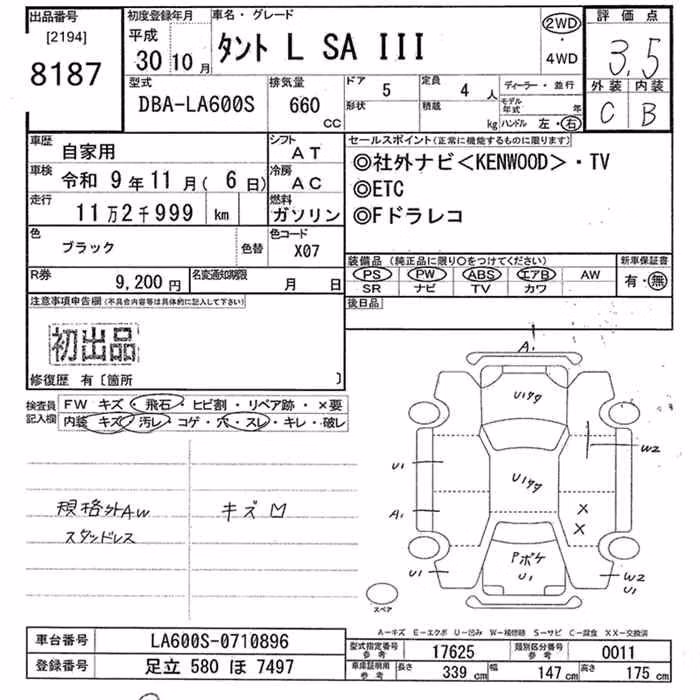 出品番号
[2194]
8187
初度登録年月
平成
30 10 月
車名・グレード
タント L SA III
2WD
・
4WD
評価点
3.5
外装 内装
C B
型式
DBA-LA600S
排気量
660 CC
ドア 5
形状
定員 4 人
積載 kg
ディーラー・並行
モデル年式 年
ハンドル 左・右
車歴 自家用
シフト AT
車検 令和 9年 11月( 6日)
冷房 AC
走行 11万2千999 km
燃料 ガソリン
色 ブラック 色替
色コード X07
R券 9,200 円
名変通知期限 月 日
セールスポイント(正常に機能するものに限ります)
◎社外ナビ<KENWOOD>・TV
◎ETC
◎Fドラレコ
装備品(純正品に限り○をつけてください) 新車保証書
PS PW ABS エアB AW 有・無
SR ナビ TV カワ
後日品
注意事項申告欄(不具合内容等は具体的に記入して下さい)
初出品
修復歴 有〔箇所 〕
検査員記入欄
FW キズ・飛石・ヒビ割・リペア跡・×要
内装 キズ・汚レ・コゲ・穴・スレ・キレ・破レ
規格外AW
スタッドレス
キズ
A1
U1
W2
U1
U1
A1
X
X
Pボケ
U1
U1
W2
U1
スペア
A-キズ E-エクボ U-凹み W-補修跡 S-サビ C-腐食 XX-交換済
車台番号 LA600S-0710896
登録番号 足立 580 ほ 7497
型式指定番号 参考 17625
類別区分番号 参考 0011
車庫証明用 参考 長さ 339 cm 幅 147 cm 高さ 175 cm